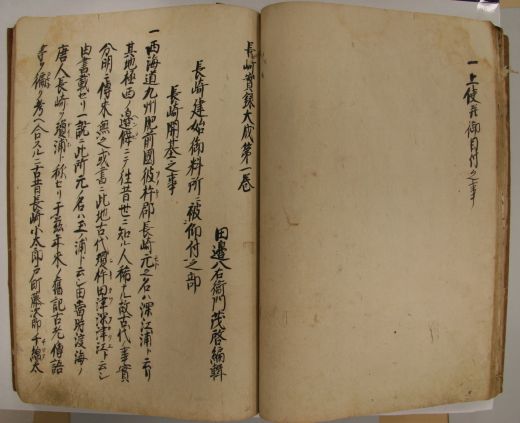 一上使并御目付之事
長崎實録大成第一巻
田邉八右衛門茂啓編輯
長崎建始御料所ニ被仰付之部
長崎開基之事
一西海道九州肥前國彼杵郡長崎元之名ハ深江浦ト云リ
其地極西ノ邊僻ニテ往昔世ニ知ル人稀ナル故古代事實
分明ニ傳来無之或書ニ此地古代瓊杵田津深津江ト云シ
由書載セリ一説ニ此所元ノ名ハ玉ノ浦ト云シ由當時渡海ノ
唐人長崎ヲ瓊浦ト称セリ于茲年来ノ舊記古老傳語
等ヲ編ク考ヘ合スルニ古昔長崎小太郎戸町藤次郎千綿太